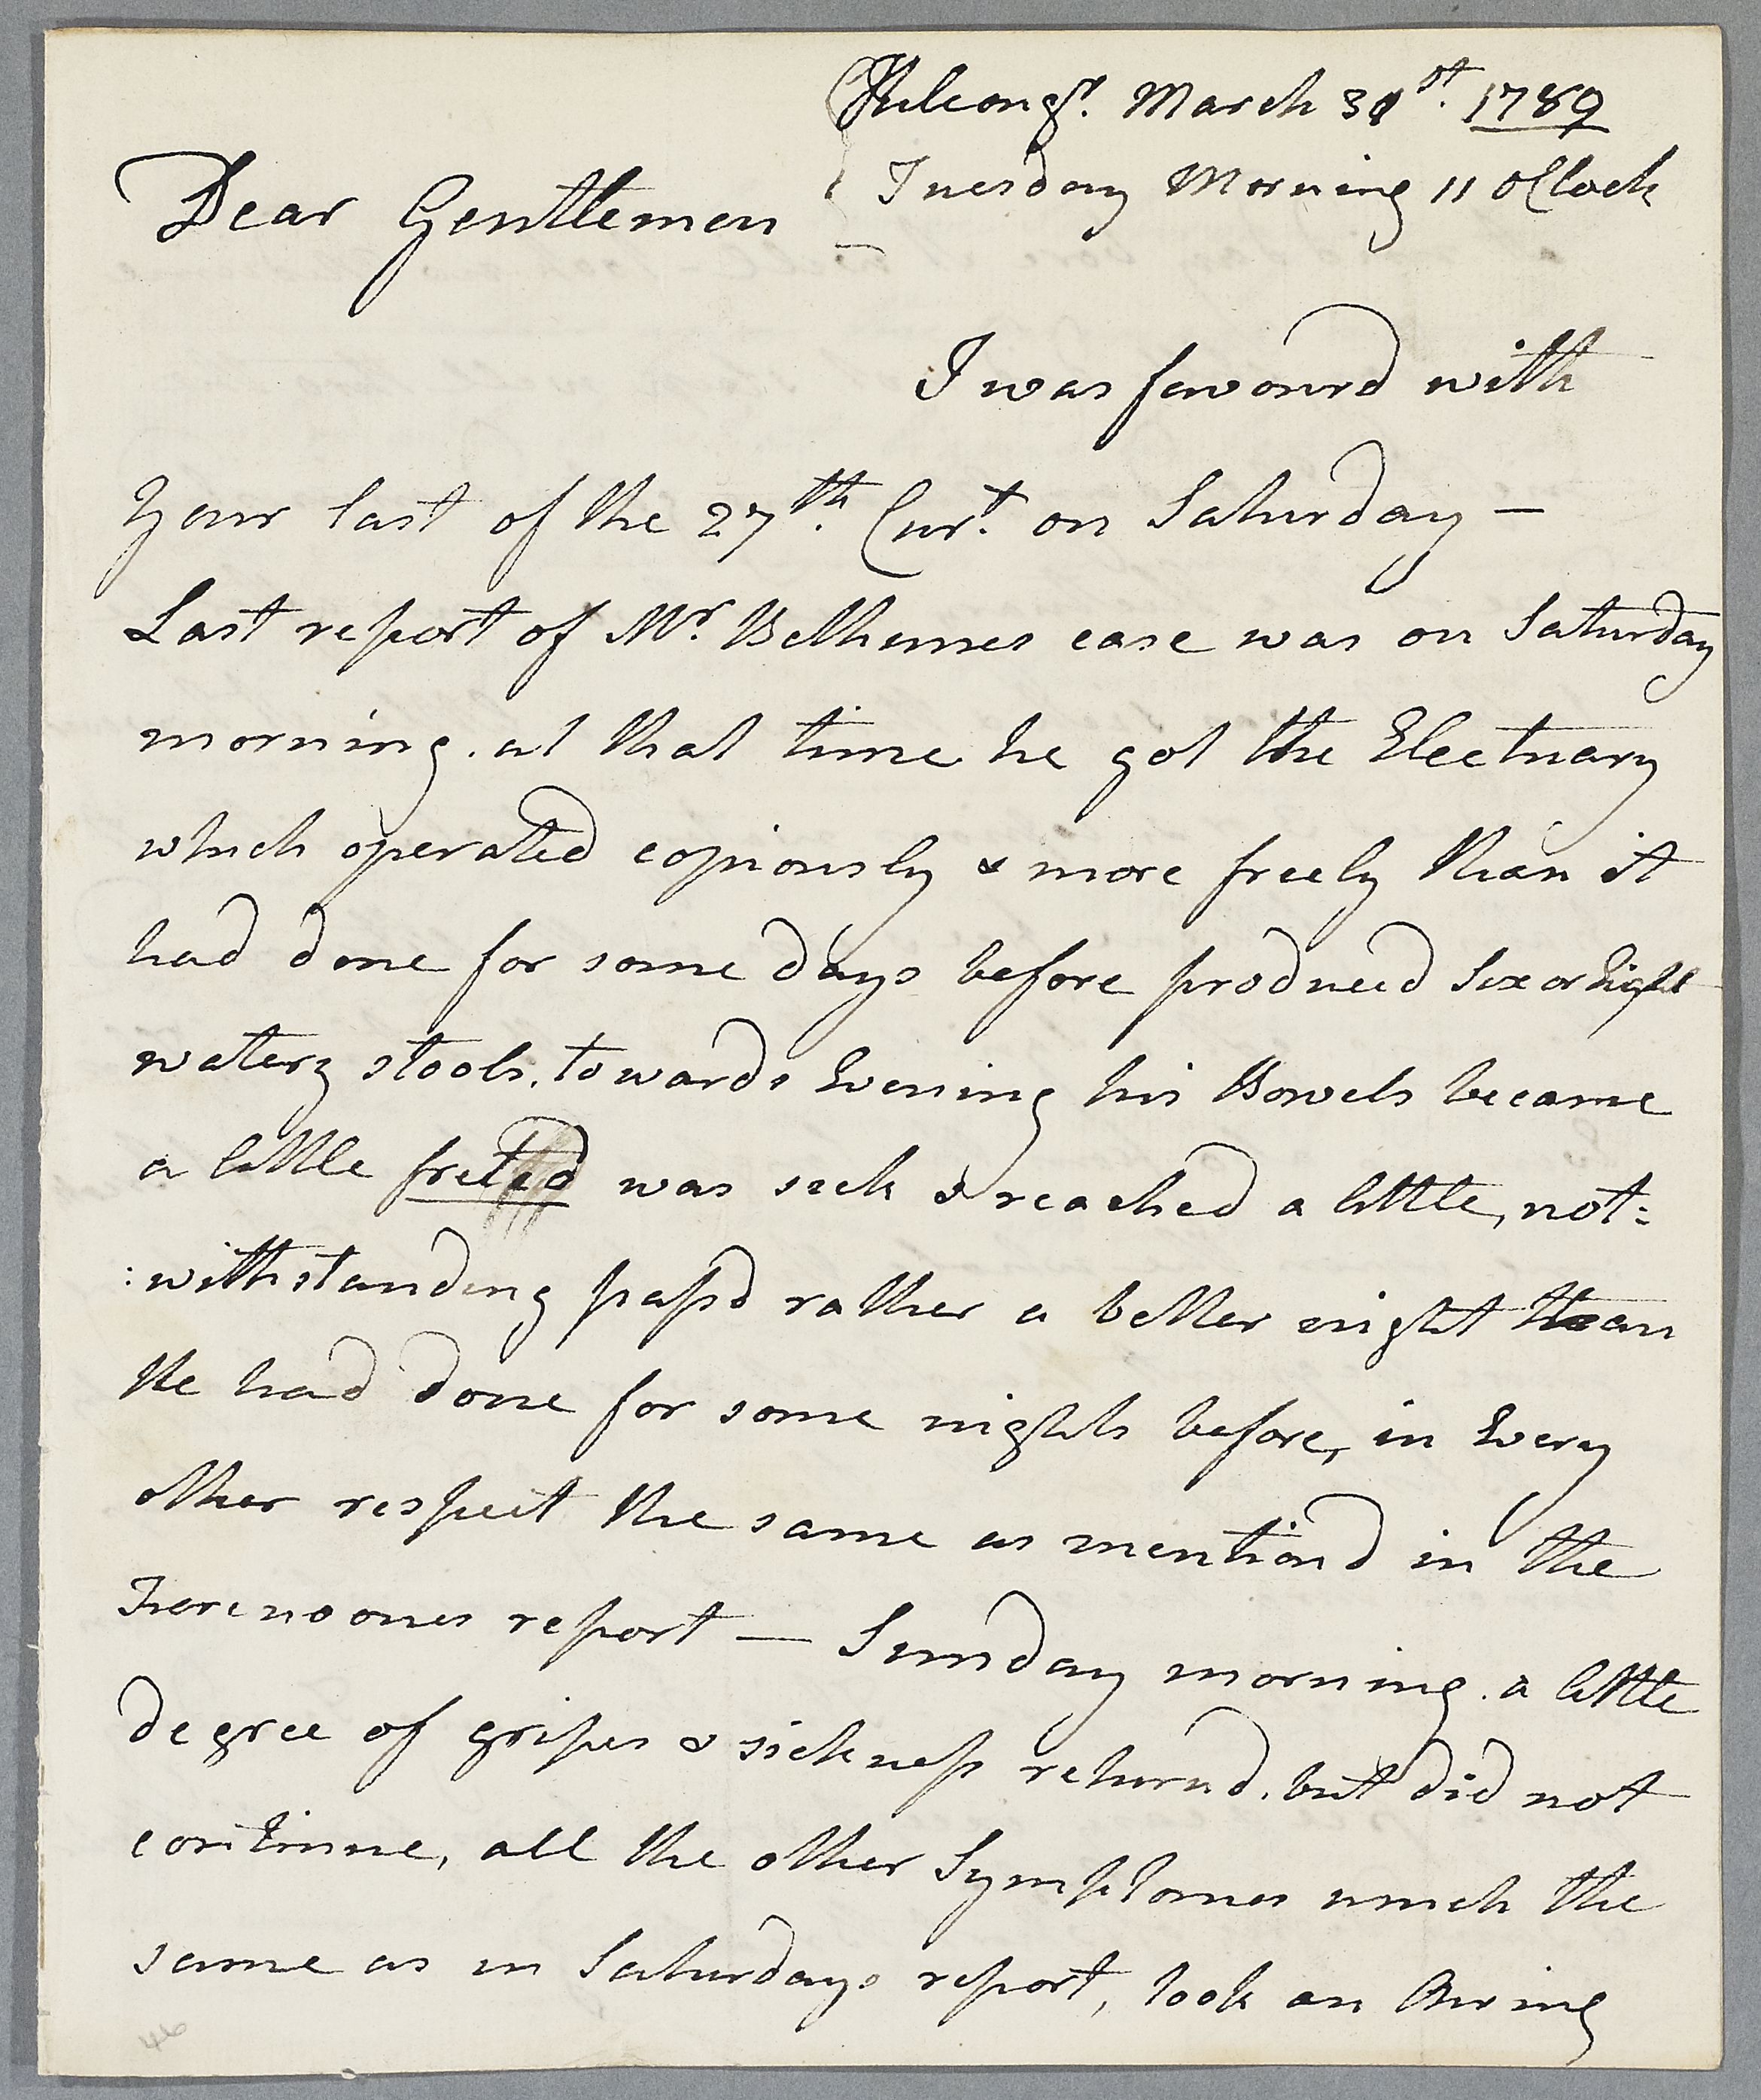 March 31st. 1789
Tuesday Morning 11 oClock
Dear Gentlemen
I was favourd with
Your last of the 27th. Curt. on Saturday —
Last report of Mr. Belhemes case was on Saturday
morning. at that time he got the Electuary
which operated copiously & more freely than it
had done for some days before produced Six or Eight
watery stools. towards Evening his Bowels became
a little freted was sick & reached a little, not:
:withstanding passd rather a better night than
he had done for some nights before, in Every
other respect the same as mentiond in the
Forenoones report — Sunday morning. a little
degree of gripes & sickness returnd. but did not
continue, all the other Symptomes much the
same as in Saturdays report, took an Airing